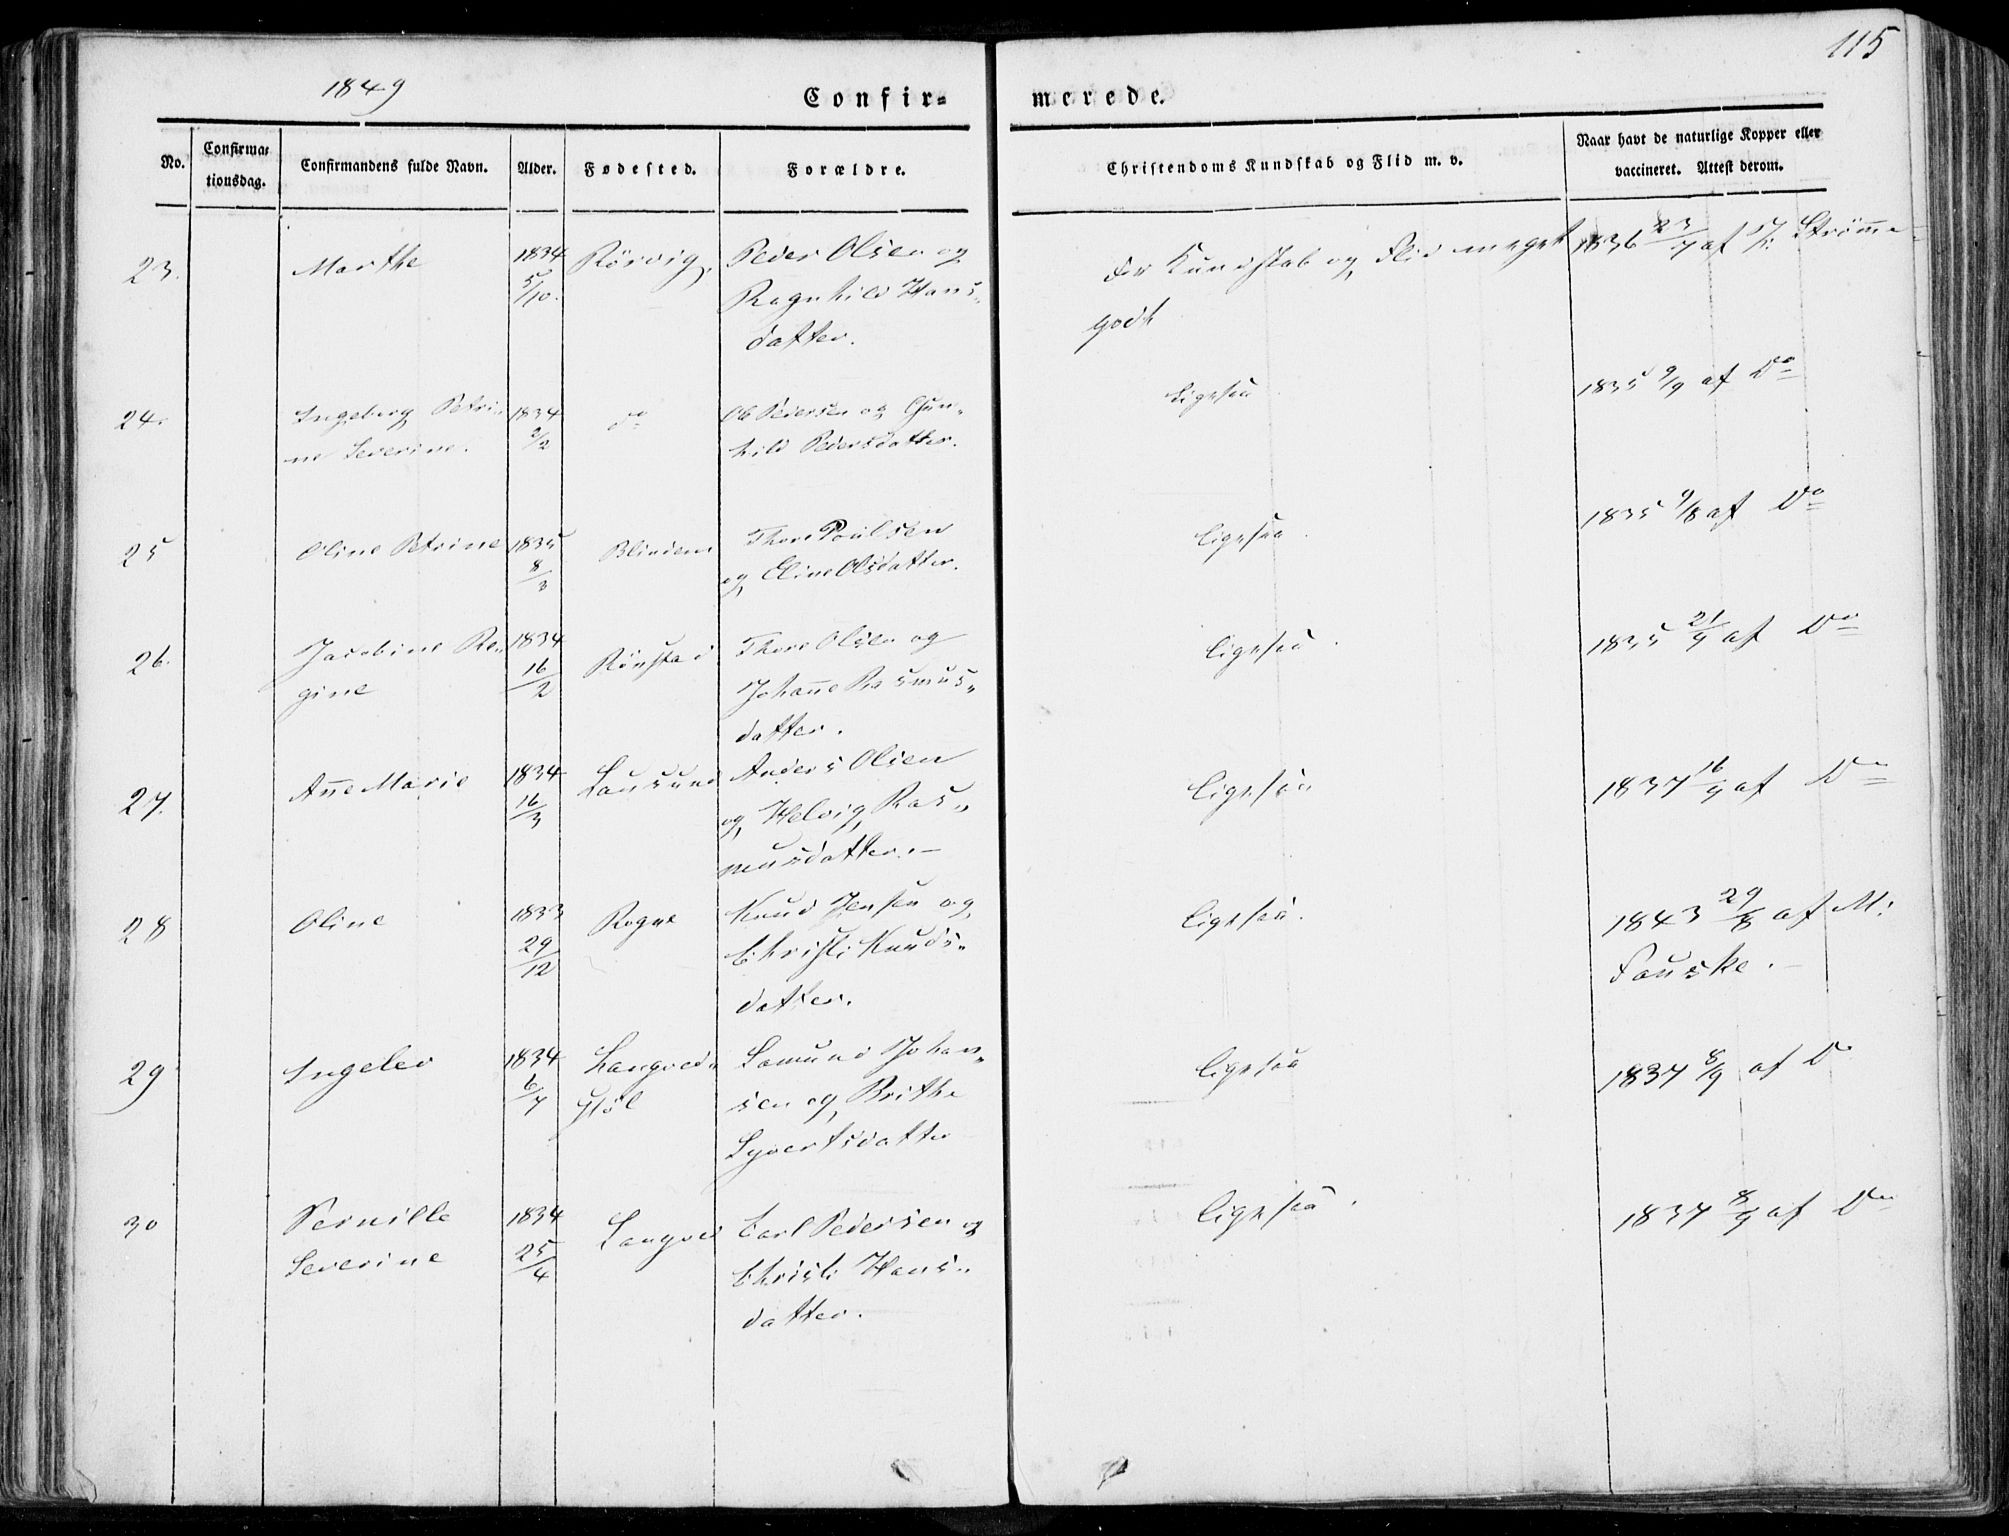 115
1849
Confir=
merede.
No.
Confirma=
tionsdag.
Confirmandens fulde Navn.
Alder.
Fødested.
Forældre.
Christendoms Kundskab og Flid m. v.
Naar havt de naturlige Kopper eller
vaccineret. Attest derom.
23.
Marthe
1834
5/10.
Rörvig,
Peder Olsen og
Ragnhild Hans„
datter.
Er Kundskab og Flid meget
godt
1836 23/7 af Strömme
24.
Ingeborg Petri„
ne Severine.
1834
2/2
do
Ole Pedersen og Gun„
hild Pedersdatter.
Ligesaa
1835 9/9 af Do
25
Oline Petrine
1835
8/3
Blindem
Thore Poulsen
og Eline Olsdatter.
Ligesaa.
1835 9/8 af Do
26.
Jacobine Re„
gine
1834
16/2
Rönstad
Thore Olsen og
Johanne Rasmus„
datter.
Ligesaa.
1835 21/9 af Do
27.
Anne Marie
1834
16/3
Lausund
Anders Olsen
og Helvig Ras„
musdatter.—
Ligesaa
1837 16/9 af Do
28
Oline
1833
29/12
Rogne
Knud Jensen og
Christi Knuds„
datter.
Ligesaa.
1843 29/8 af M:
Fauske.—
29
Ingelev
1834
6/7
Langved„
Amund Johan„
sen og Brithe
Syvertsdatter
Ligesaa
1837 8/9 af Do
30
Pernille
Severine
1834
25/4
Langved
Carl Pedersen og
Christi Hans„
datter.
Ligesaa.
1837 8/9 af Do